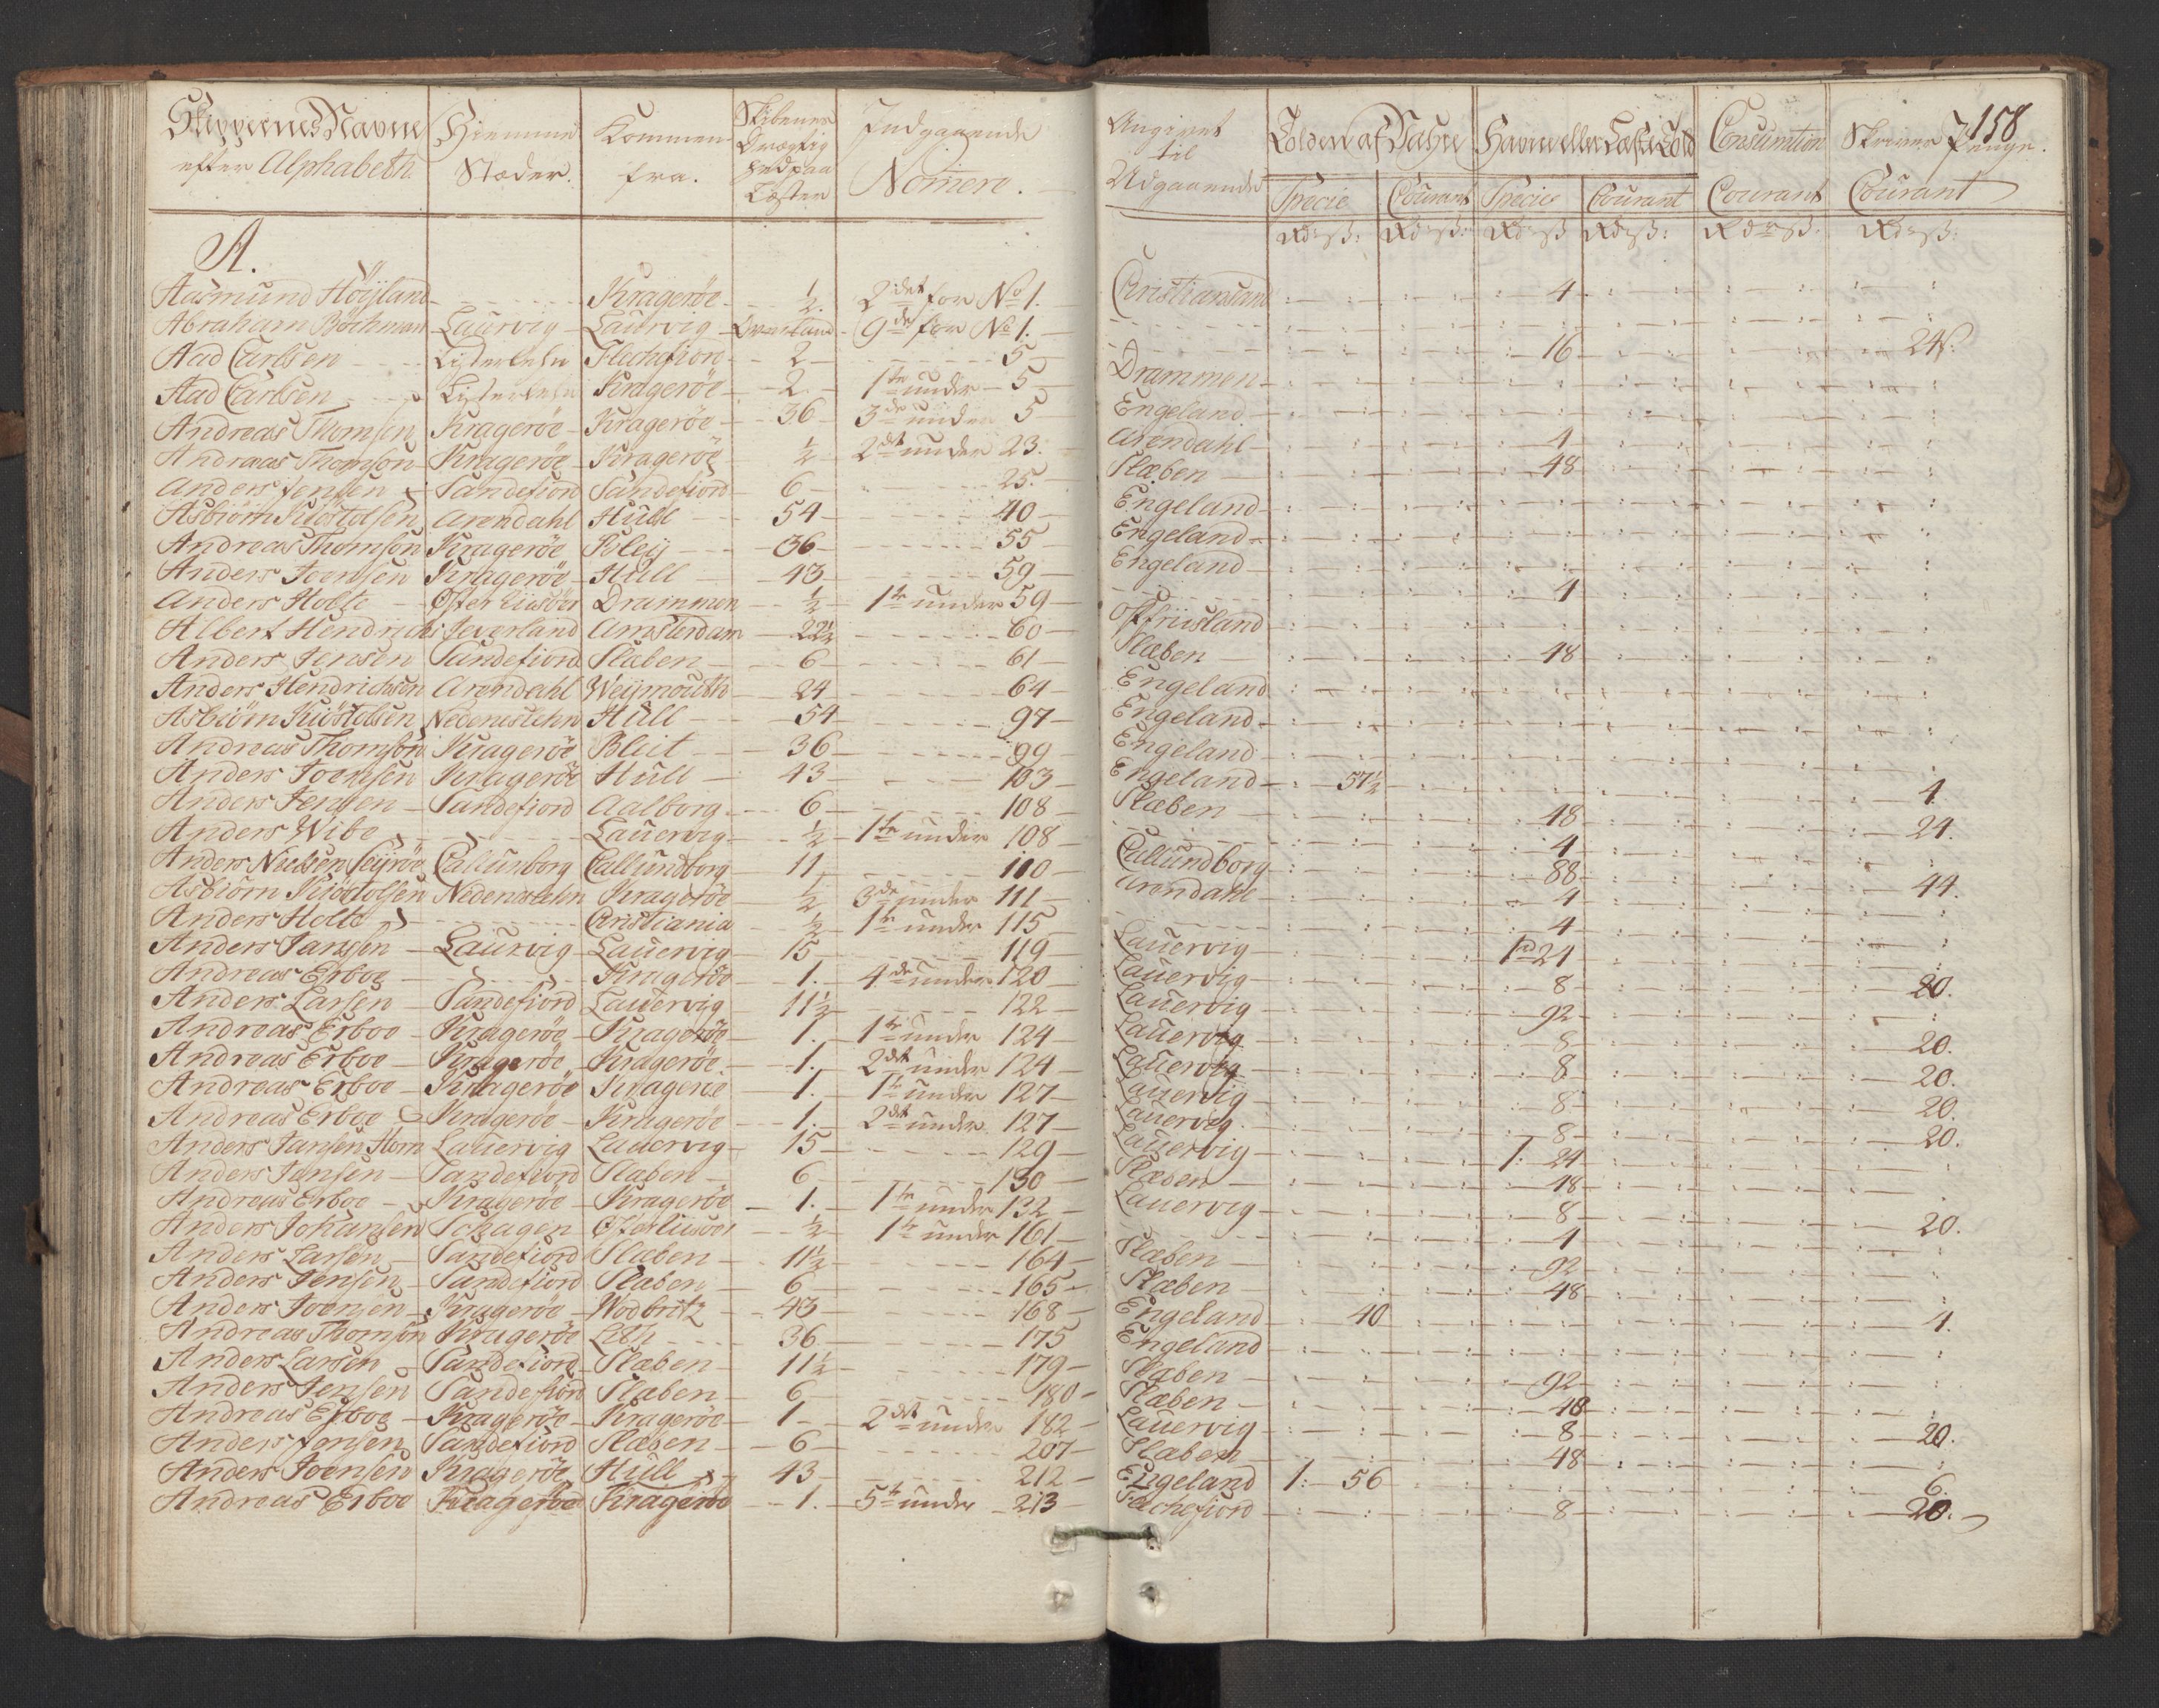 Skippernes Navne efter Alphabeth | Hiemme Stæder. | Kommen fra. | Skibenes Drægtighed paa Læster | Indgaaende Nomero. | Angivet til Udgaaende | Tolden af Vahre | Havne eller Læste Told | Consumtion | Skriver Penge.
158
Specie | Courant | Specie | Courant | Courant | Courant
Rd ß: | Rd ß: | Rd ß | Rd ß: | Rd ß: | Rd ß:
A.
Aasmund Höyland | Krageröe | ½ | 2det for No 1. | Christiansand | 4
Abraham Böchman | Laurvig | Laurvig | 9de for No 1.
Aad Carlsen | Listerlehn | Flechefiord | 2 | 5 | Drammen | 16 | 24ß.
Aad Carlsen | Listerlehn | Krageröe | 2 | 1te under 5
Andreas Thomsen | Krageröe | Krageröe | 36 | 3de under 5 | Engeland
Andreas Thomsen | Krageröe | Krageröe | ½ | 2det under 23. | Arendahl | 4
Anders Jensen | Sandefiord | Sandefiord | 6 | 25. | Slæben | 48
Asbiörn Kiöstolsen | Arendahl | Hull | 54 | 40 | Engeland
Andreas Thomsen | Krageröe | 36 | 55 | Engeland
Anders Joensen | Krageröe | Hull | 43 | 59 | Engeland
Anders Holte | Öster Riisöer | Drammen | ½ | 1te under 59 | 4
Albert Hendrichs | Jeverland | Amsterdam | 22½ | 60 | Ostfriisland
Anders Jensen | Sandefiord | Slæben | 6 | 61 | Slæben | 48
Anders Hendrichsen | Arendahl | Weijmouth | 24 | 64 | Engeland
Asbiörn Kiöstolsen | Nedeneslehn | Hull | 54 | 97 | Engeland
Andreas Thomsen | Krageröe | 36 | 99 | Engeland
Anders Joensen | Krageröe | Hull | 43 | 103 | Engeland | 57½ | 4.
Anders Jensen | Sandefiord | Aalborg | 6 | 108 | Slæben | 48 | 24.
Anders Wibe | Lauervig | ½ | 1te under 108 | 4
Anders Nielsen Seyröe | Callundborg | Callundborg | 11 | 110 | Callundborg | 88 | 44.
Asbiörn Kiöstolsen | Nedeneslehn | Krageröe | ½ | 3de under 111 | Arendahl | 4
Anders Holte | Christiania | ½ | 1te under 115 | 4
Anders Jansen | Laurvig | Lauervig | 15 | 119 | Lauervig | 1rd 24
Andreas Erboe | Krageröe | 1. | 4de under 120 | Lauervig | 8 | 20.
Anders Larsen | Sandefiord | Lauervig | 11½ | 122 | Lauervig | 92
Andreas Erboe | Krageröe | Krageröe | 1. | 1te under 124 | Lauervig | 8 | 20.
Andreas Erboe | Krageröe | Krageröe | 1. | 2det under 124 | Lauervig | 8 | 20.
Andreas Erboe | Krageröe | Krageröe | 1. | 1te under 127 | Lauervig | 8 | 20.
Andreas Erboe | Krageröe | Krageröe | 1. | 2det under 127 | Lauervig | 8 | 20.
Anders Jansen Horn | Lauervig | Lauervig | 15 | 129 | Lauervig | 1: 24
Anders Jensen | Sandefiord | Slaben | 6 | 130 | Slæben | 48
Andreas Erboe | Krageröe | Krageröe | 1. | 1te under 132 | Lauervig | 8 | 20.
Anders Johansen | Schagen | Österriisöer | ½ | 1te under 161 | 4
Anders Larsen | Sandefiord | Slæben | 11½ | 164 | Slæben | 92
Anders Jensen | Sandefiord | Slæben | 6 | 165 | Slæben | 48
Anders Joensen | Krageröe | Wodbritz | 43 | 168 | Engeland | 40 | 4.
Andreas Thomsen | Krageröe | Lith | 36 | 175 | Engeland
Anders Larsen | Sandefiord | Slæben | 11½ | 179 | Slæben | 92
Anders Jensen | Sandefiord | Slaben | 6 | 180 | Slæben | 48
Andreas Erboe | Krageröe | Krageröe | 1 | 2det under 182 | Lauervig | 8 | 20.
Anders Jensen | Sandefiord | Slæben | 6 | 207 | Slæben | 48
Anders Joensen | Krageröe | Hull | 43 | 212 | Engeland | 1: 56 | 6.
Andreas Erboe | Krageröe | Krageröe | 1. | 5te under 213 | Flechefiord | 8 | 20.